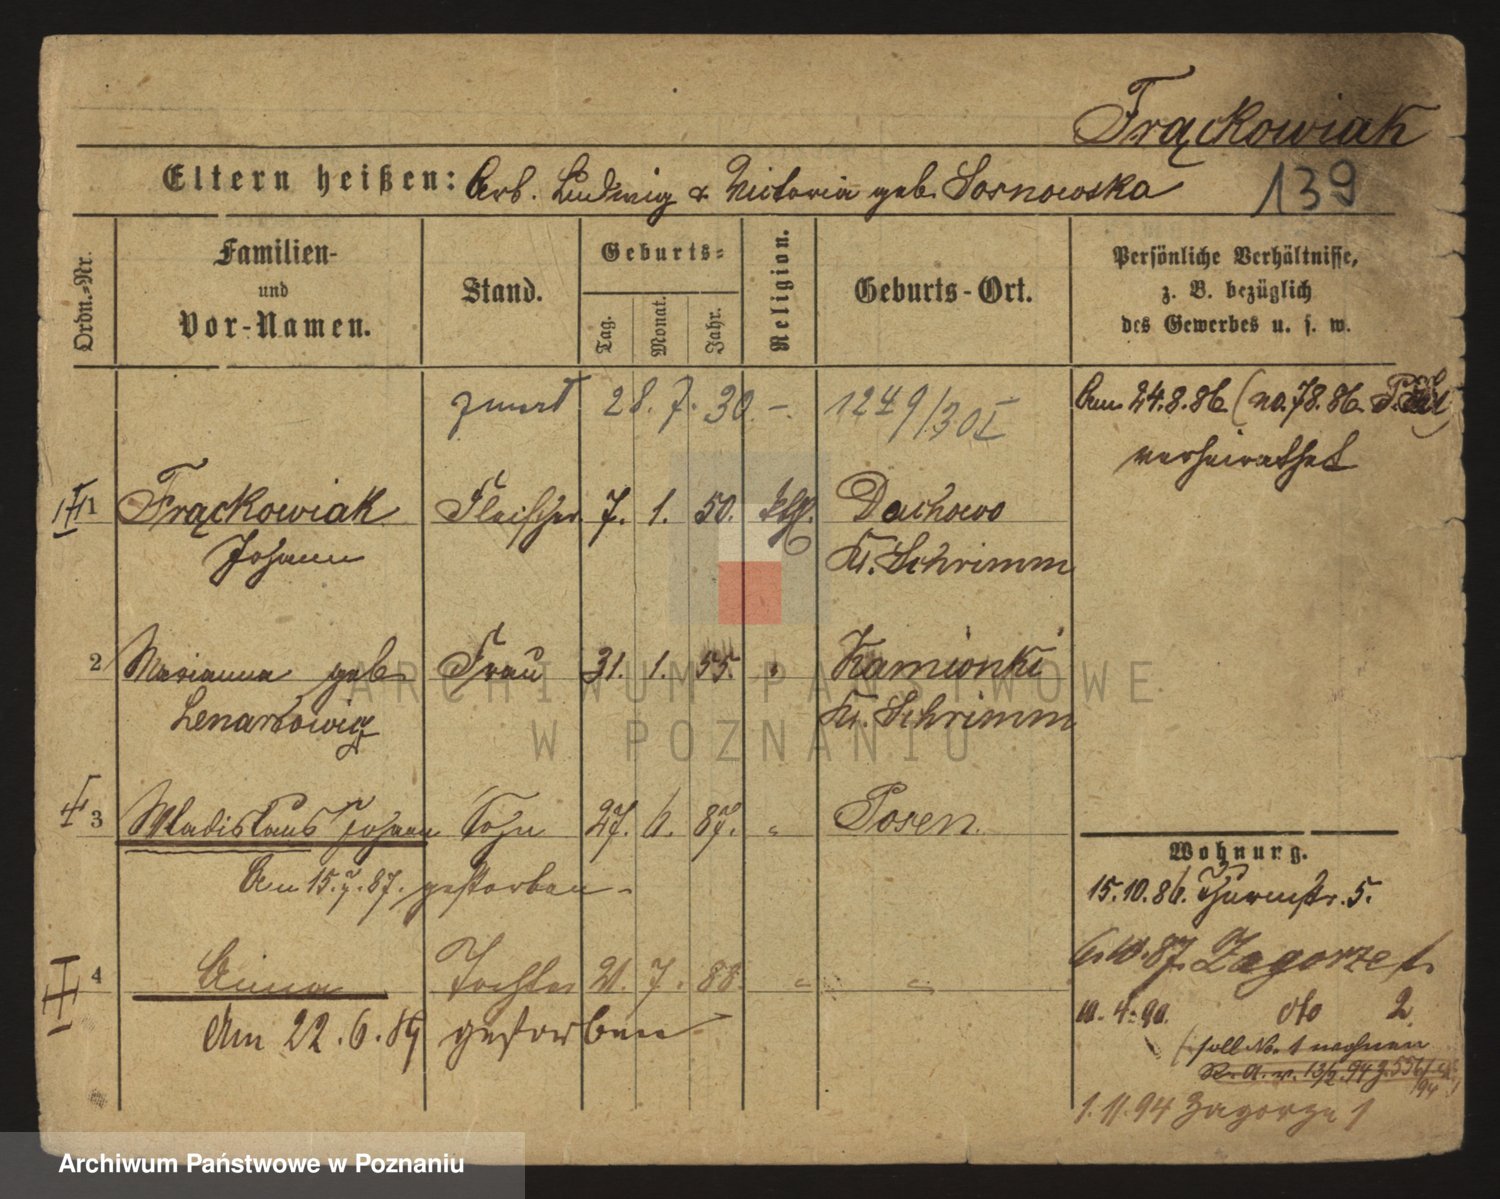 Frąckowiak
139
Eltern heißen: Arb. Ludwig & Victoria geb. Sosnowska
Ordn.-Nr.
Familien-
und
Vor-Namen.
Stand.
Geburts-
Tag.
Monat.
Jahr.
Religion.
Geburts-Ort.
Persönliche Verhältnisse,
z. B. bezüglich
des Gewerbes u. s. w.
28. 7. 30 -. 1249/30 I
Am 24.8.86 (No. 78.86
verheirathet
1 Frąckowiak Fleischer 7. 1. 50. kth. Dachowo
Johann Kr. Schrimm
2 Marianna geb. Frau 31. 1. 55. " Kamionki
Kr. Schrimm
3 Wladislaus Johann Sohn 27. 6. 87. " Posen.
Am 15.7.87. gestorben -
4 Anna Tochter 21. 7. 88. " "
Am 22.6.89 gestorben
Wohnung.
15.10.86. Thurmstr. 5.
87. Zagorze 1.
10.4.90. dto 2
soll No. 1 wohnen
1.11.94 Zagorze 1
ARCHIWUM PAŃSTWOWE
W POZNANIU
Archiwum Państwowe w Poznaniu